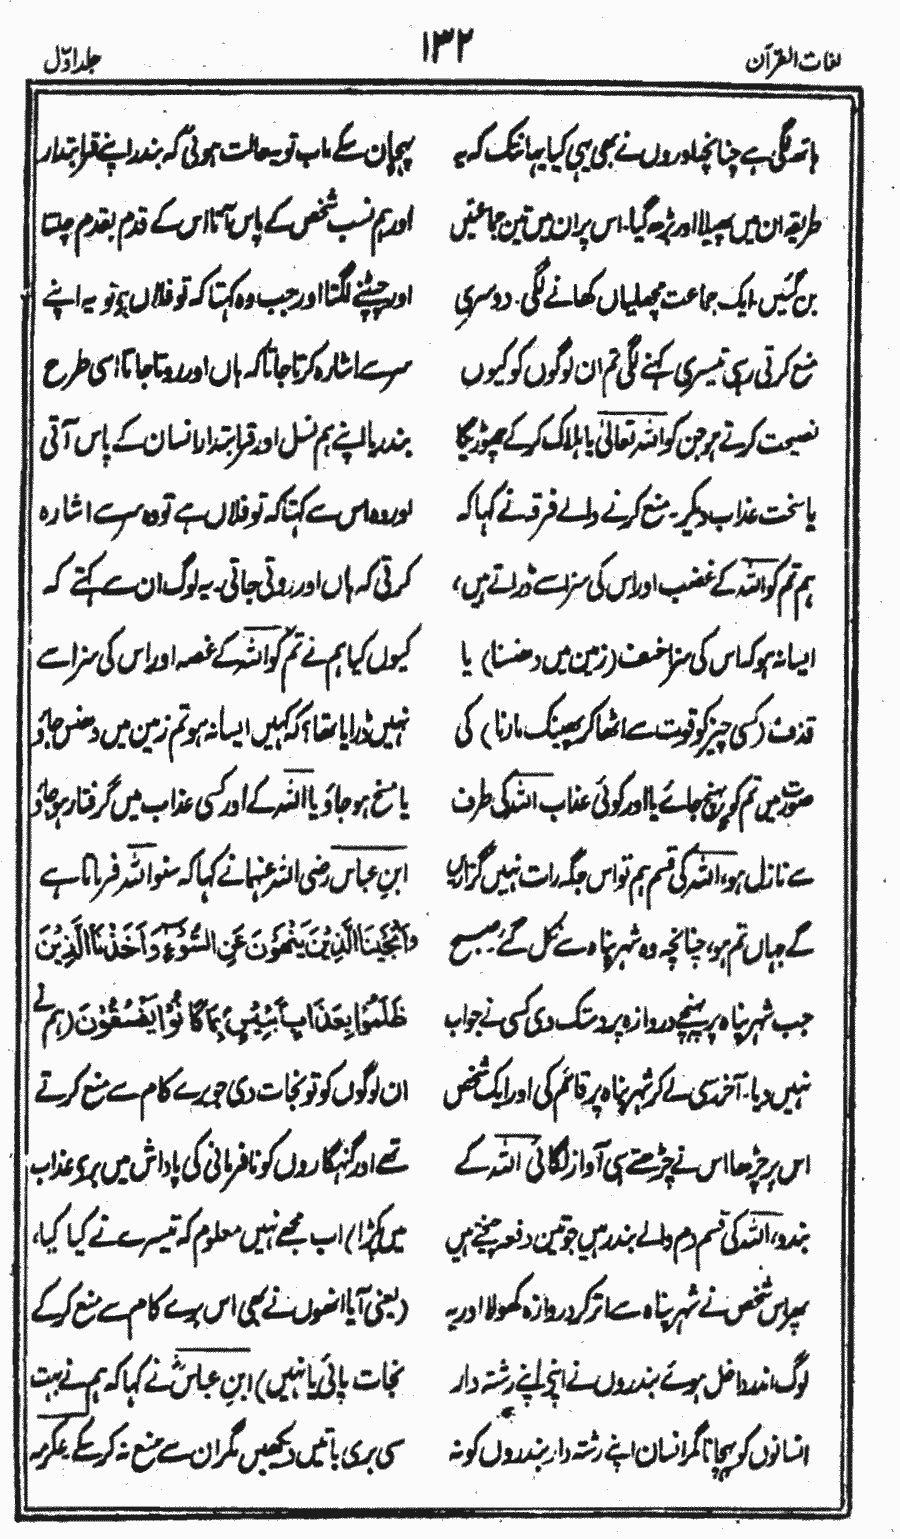 لغات القرآن
۱۳۲
جلد اوّل
ہاتھ لگی ہے چنانچہ اوروں نے بھی یہی کیا یہانتک کہ یہ
طریقہ ان میں پھیلا اور بڑھ گیا۔ اس پر ان میں تین جماعتیں
بن گئیں۔ ایک جماعت مچھلیاں کھانے لگی۔ دوسری
منع کرتی رہی تیسری کہنے لگی تم ان لوگوں کو کیوں
نصیحت کرتے ہو جن کو اللہ تعالیٰ یا ہلاک کرکے چھوڑیگا
یا سخت عذاب دیکر۔ منع کرنے والے فرقہ نے کہا کہ
ہم تم کو اللہ کے غضب اور اس کی سزا سے ڈراتے ہیں،
ایسا نہ ہو کہ اس کی سزا خسف (زمین میں دھنسنا) یا
قذف (کسی چیز کو قوت سے اٹھا کر پھینک مارنا) کی
صورت میں تم کو پہنچ جائے یا اور کوئی عذاب اللہ کی طرف
سے نازل ہو، اللہ کی قسم ہم تو اس جگہ رات نہیں گزاریں
گے جہاں تم ہو، چنانچہ وہ شہر پناہ سے نکل گئے، صبح
جب شہر پناہ پر پہنچے دروازہ پر دستک دی کسی نے جواب
نہیں دیا۔ آخر سی لے کر شہر پناہ پر قائم کی اور ایک شخص
اس پر چڑھا اس نے چڑھتے ہی آواز لگائی اللہ کے
بندو، اللہ کی قسم دم والے بندر ہیں جو تین دفعہ چیختے ہیں
پھر اس شخص نے شہر پناہ سے اتر کر دروازہ کھولا اور یہ
لوگ اندر داخل ہوئے بندروں نے اپنے اپنے رشتہ دار
انسانوں کو پہچانا مگر انسان اپنے رشتہ دار بندروں کو نہ
پہچان سکے ماب تو یہ حالت ہوئی کہ بندر اپنے قرابتدار
اور ہم نسب شخص کے پاس آتا اس کے قدم بقدم چلتا
اور چمٹنے لگتا اور جب وہ کہتا کہ تو فلاں ہے تو یہ اپنے
سر سے اشارہ کرتا جاتا کہ ہاں اور روتا جاتا اسی طرح
بندریا اپنے ہم نسل اور قرابتدار انسان کے پاس آتی
اور وہ اس سے کہتا کہ تو فلاں ہے تو وہ سر سے اشارہ
کرتی کہ ہاں اور روتی جاتی۔ یہ لوگ ان سے کہتے کہ
کیوں کیا ہم نے تم کو اللہ کے غصہ اور اس کی سزا سے
نہیں ڈرایا تھا؟ کہ کہیں ایسا نہ ہو تم زمین میں دھنس جاؤ
یا مسخ ہو جاؤ یا اللہ کے اور کسی عذاب میں گرفتار ہو جاؤ
ابن عباس رضی اللہ عنہما نے کہا کہ سنو اللہ فرماتا ہے
وَاَنْجَيْنَا الَّذِيْنَ يَنْهَوْنَ عَنِ السُّوْءِ وَاَخَذْنَا الَّذِيْنَ
ظَلَمُوْا بِعَذَابٍ بَئِيْسٍ بِمَا كَانُوْا يَفْسُقُوْنَ (ہم نے
ان لوگوں کو تو نجات دی جو برے کام سے منع کرتے
تھے اور گنہگاروں کو نافرمانی کی پاداش میں بری عذاب
میں پکڑا) اب مجھے نہیں معلوم کہ تیسرے نے کیا کیا،
(یعنی آیا انھوں نے بھی اس برے کام سے منع کرکے
نجات پائی یا نہیں) ابن عباسؓ نے کہا کہ ہم نے بہت
سی بری باتیں دیکھیں مگر ان سے منع نہ کرسکے عکرمہ